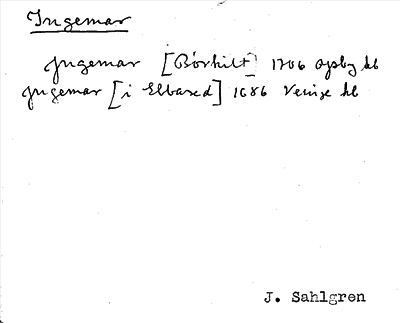 Ingemar
Jngemar [Börhilt] 1706 Opsby kb
Jngemar [i Elbared] 1686 Veinge kb
J. Sahlgren